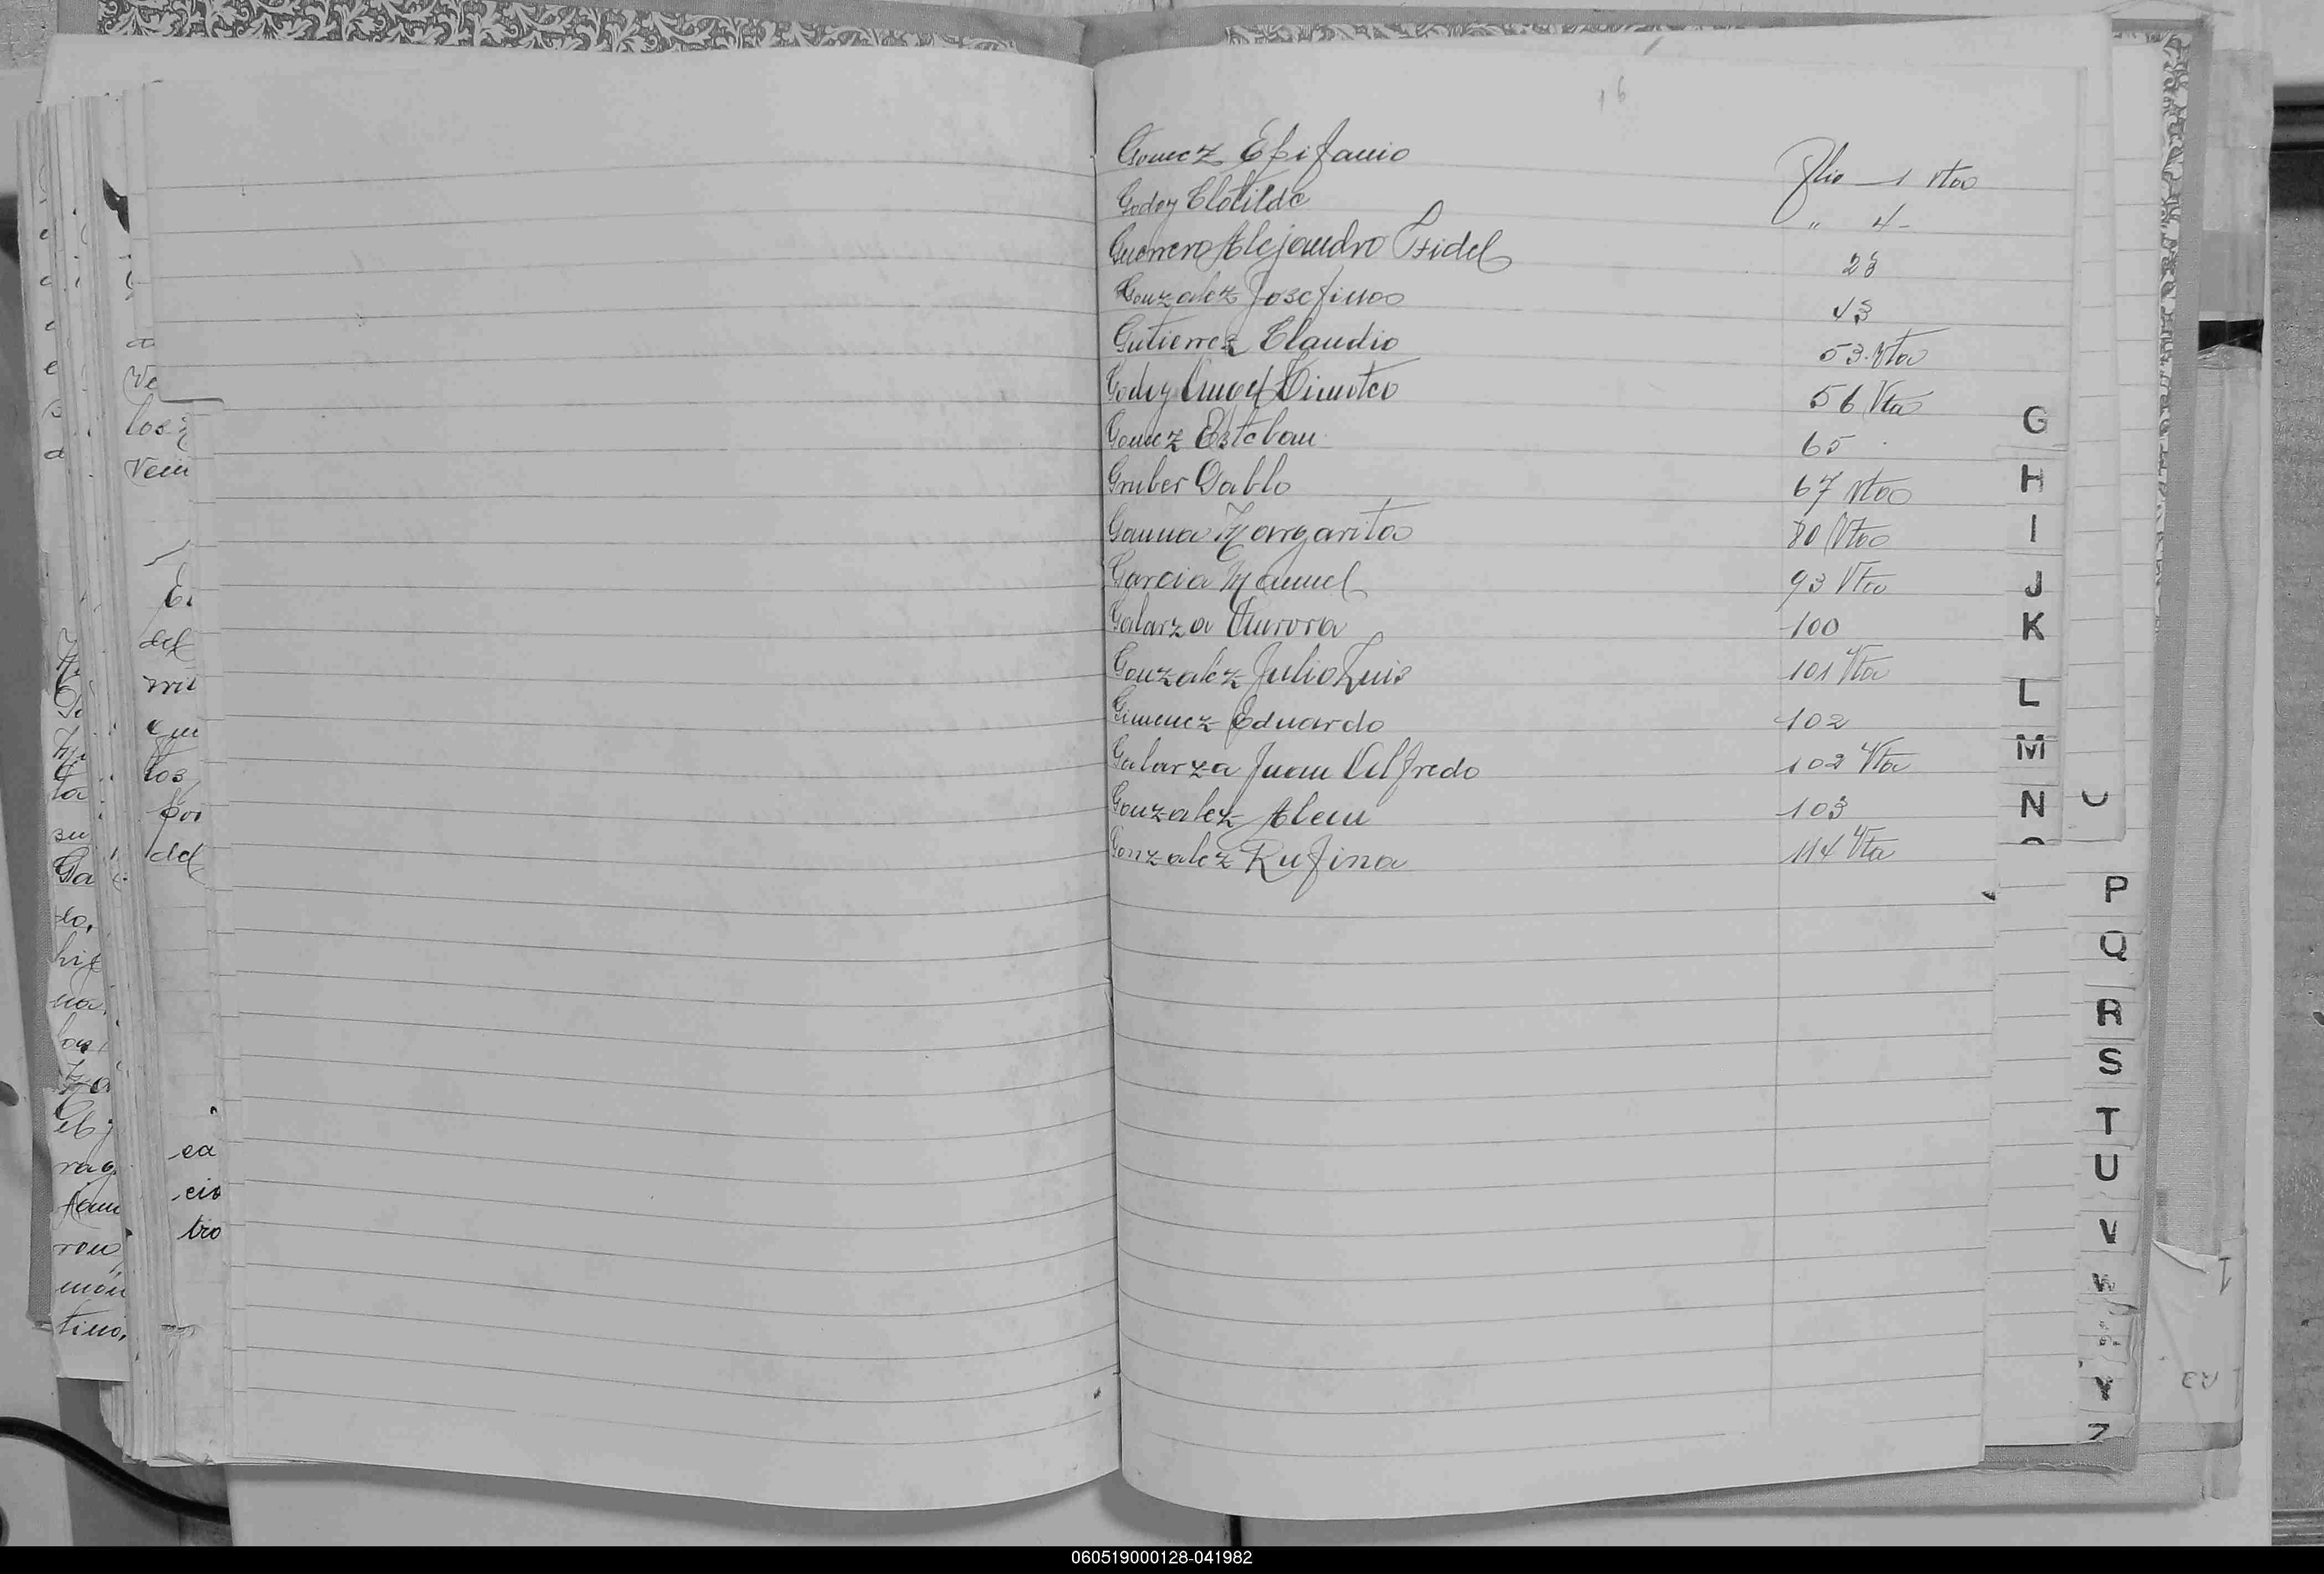 16
Gomez Epifanio Flio 1 vta
Godoy Clotilde " 4-
Guerrero Alejandro Fidel 28
Gonzalez Josefina 43
Gutierrez Claudio 53 Vta
Godoy Angel Timoteo 56 Vta
Gomez Esteban 65
Gruber Pablo 67 vta
Gauna Margarita 80 Vta
Garcia Manuel 93 Vta
Galarza Aurora 100
Gonzalez Julio Luis 101 Vta
Gimenez Eduardo 102
Galarza Juan Alfredo 102 Vta
Gonzalez Alem 103
Gonzalez Rufina 114 Vta
G
H
I
J
K
L
M
N
P
Q
R
S
T
U
V
W
Y
Z
los
Vein
del
los
del
ea
cio
tro
060519000128-041982